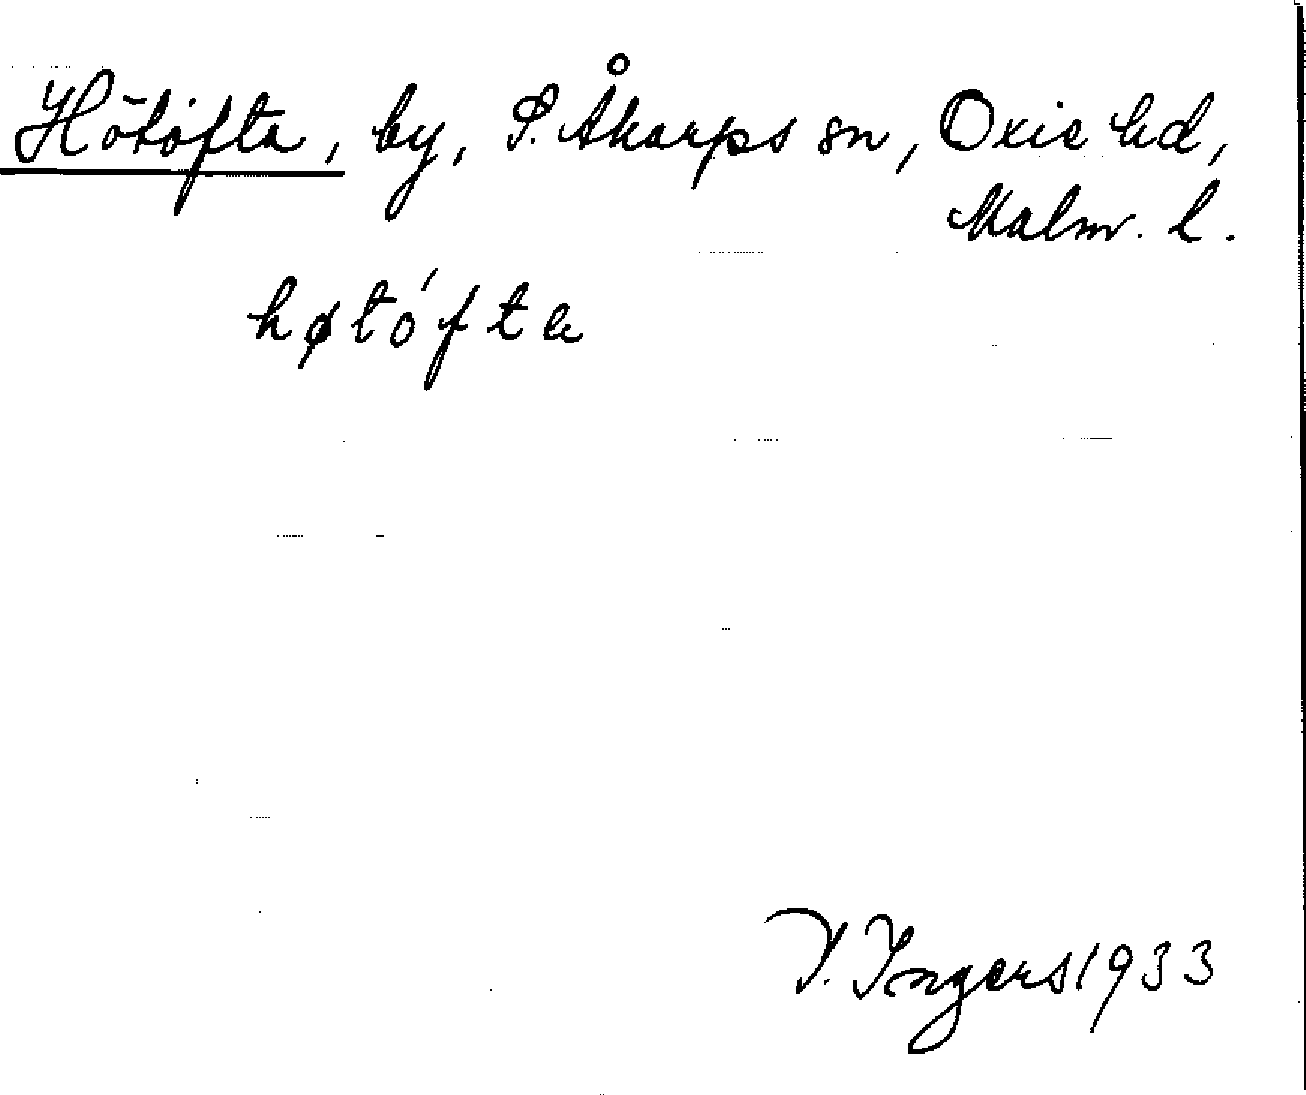 Hötofta, by, S. Åkarps sn, Oxie hd,
Malm. l.
høtófta
I. Ingers 1933